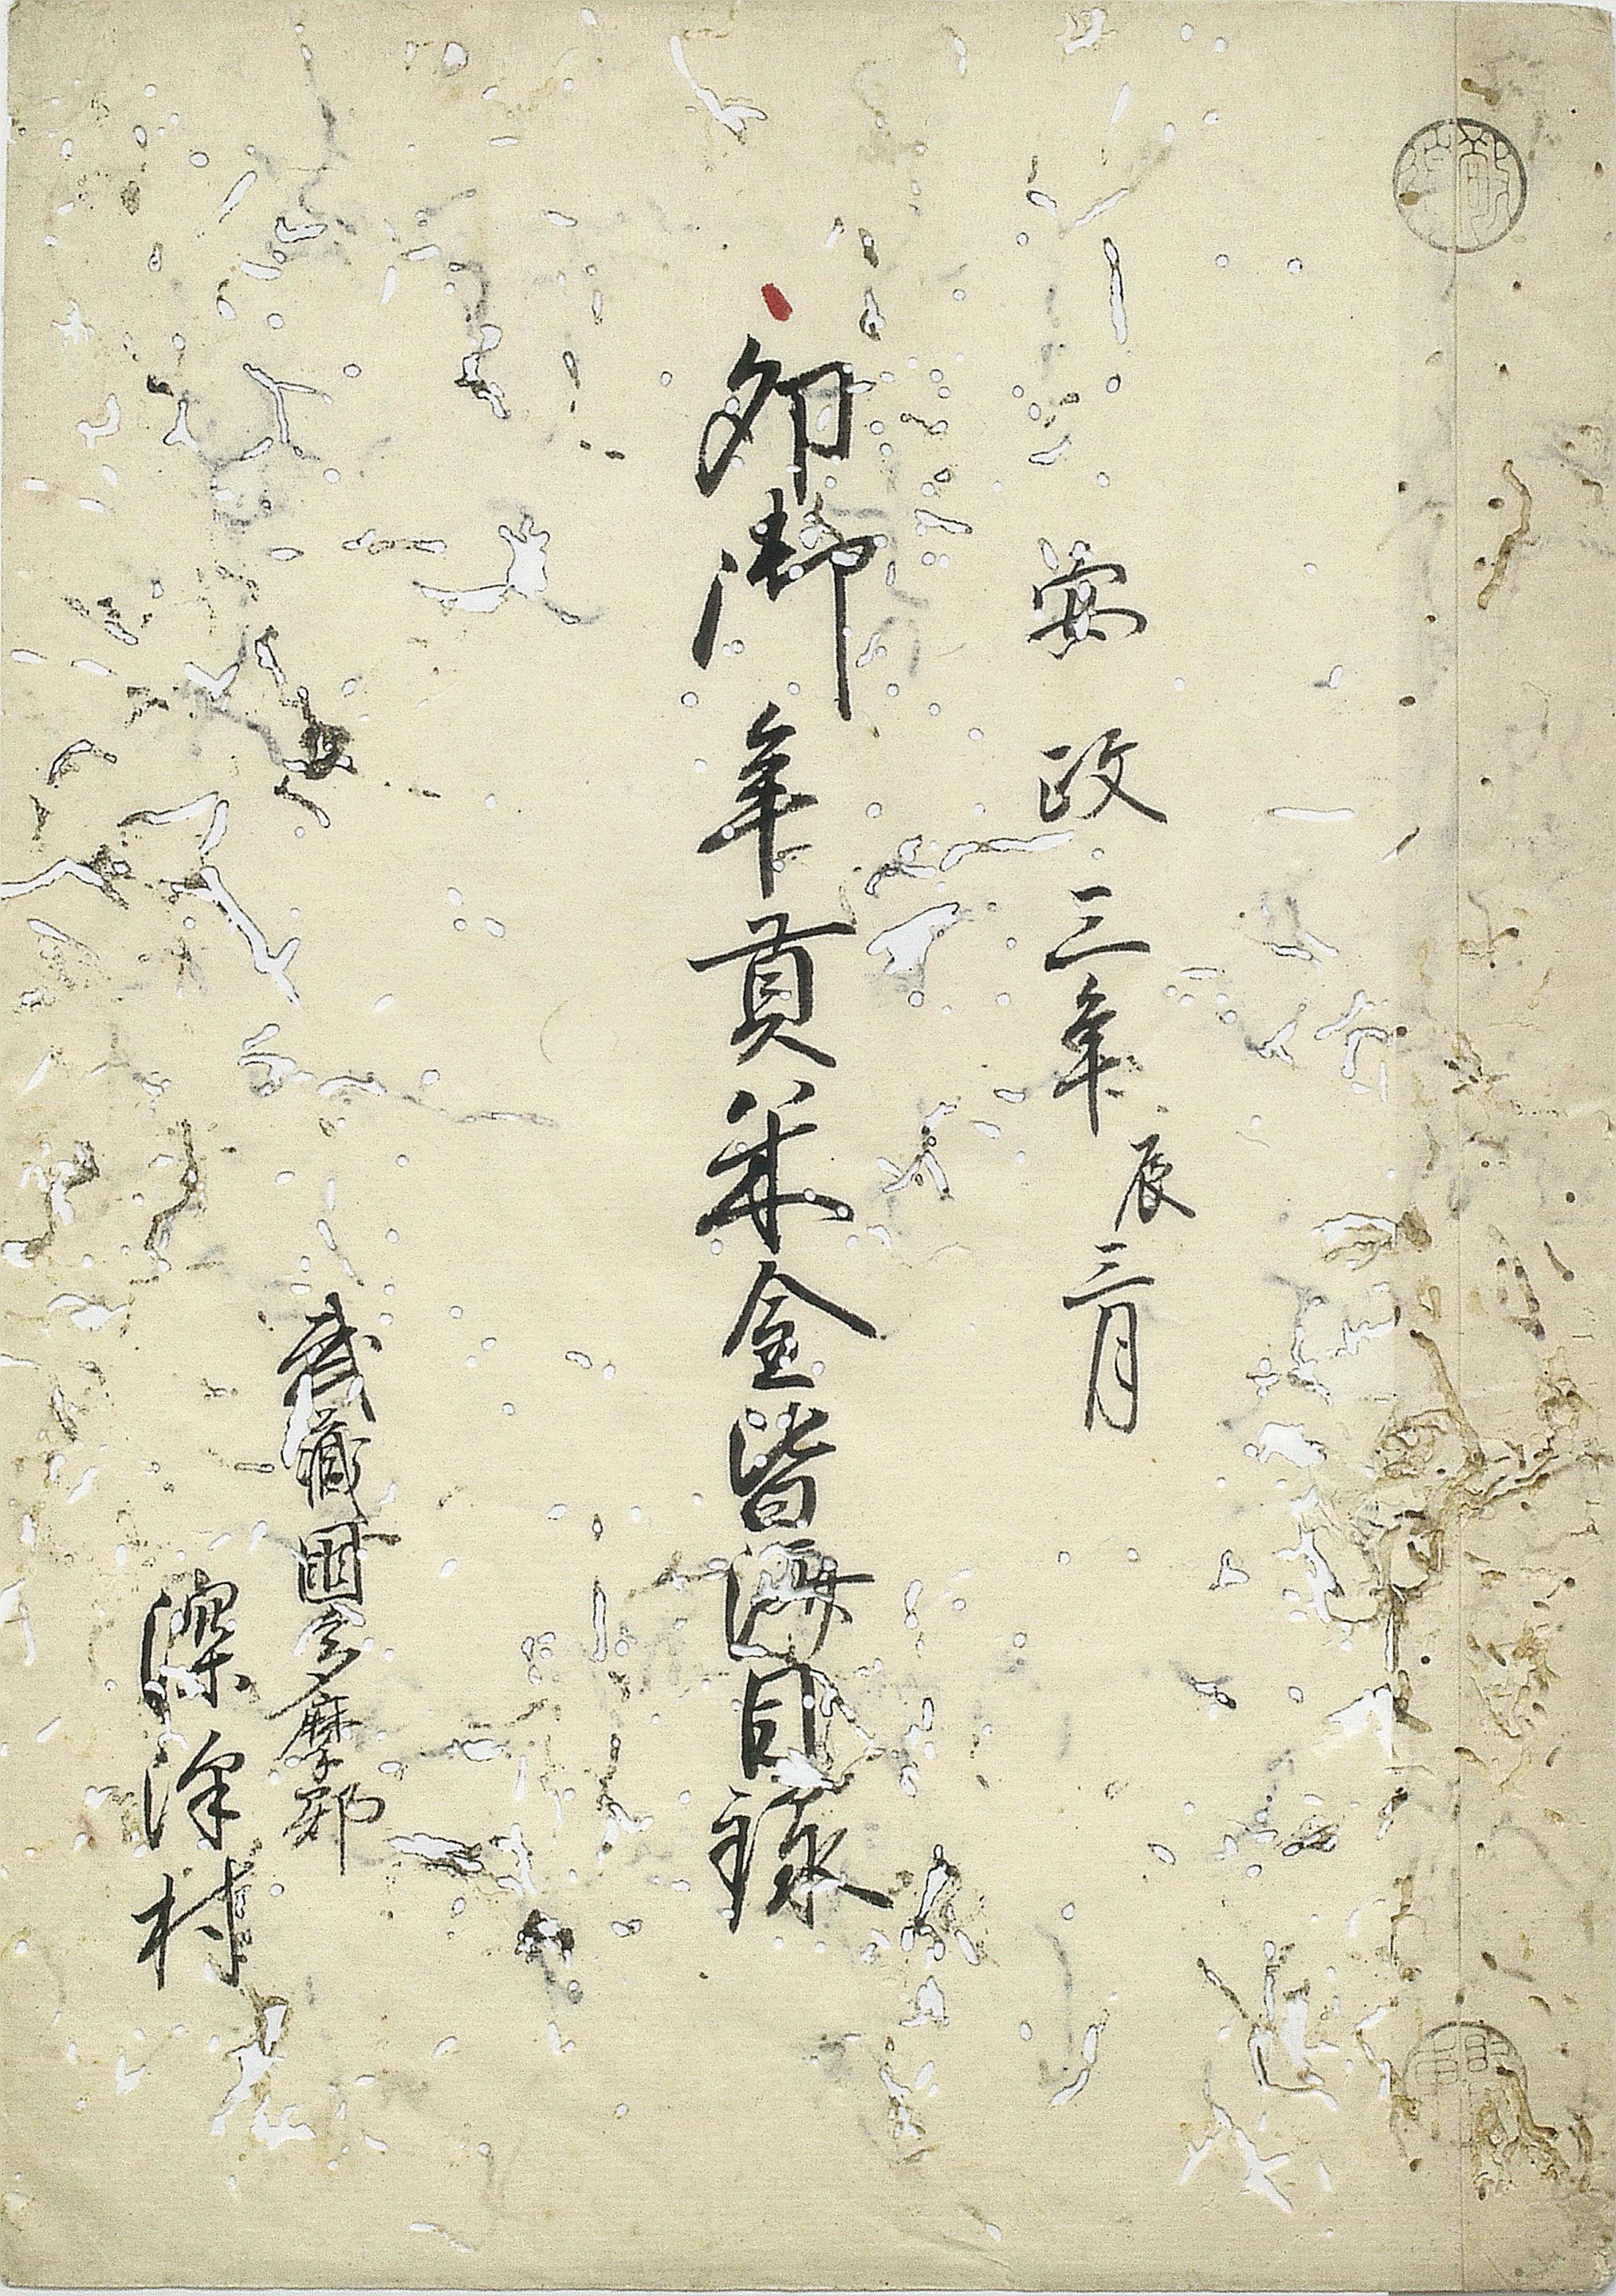 安政三年辰三月
卯御年貢米金皆済目録
武蔵国多摩郡
深沢村